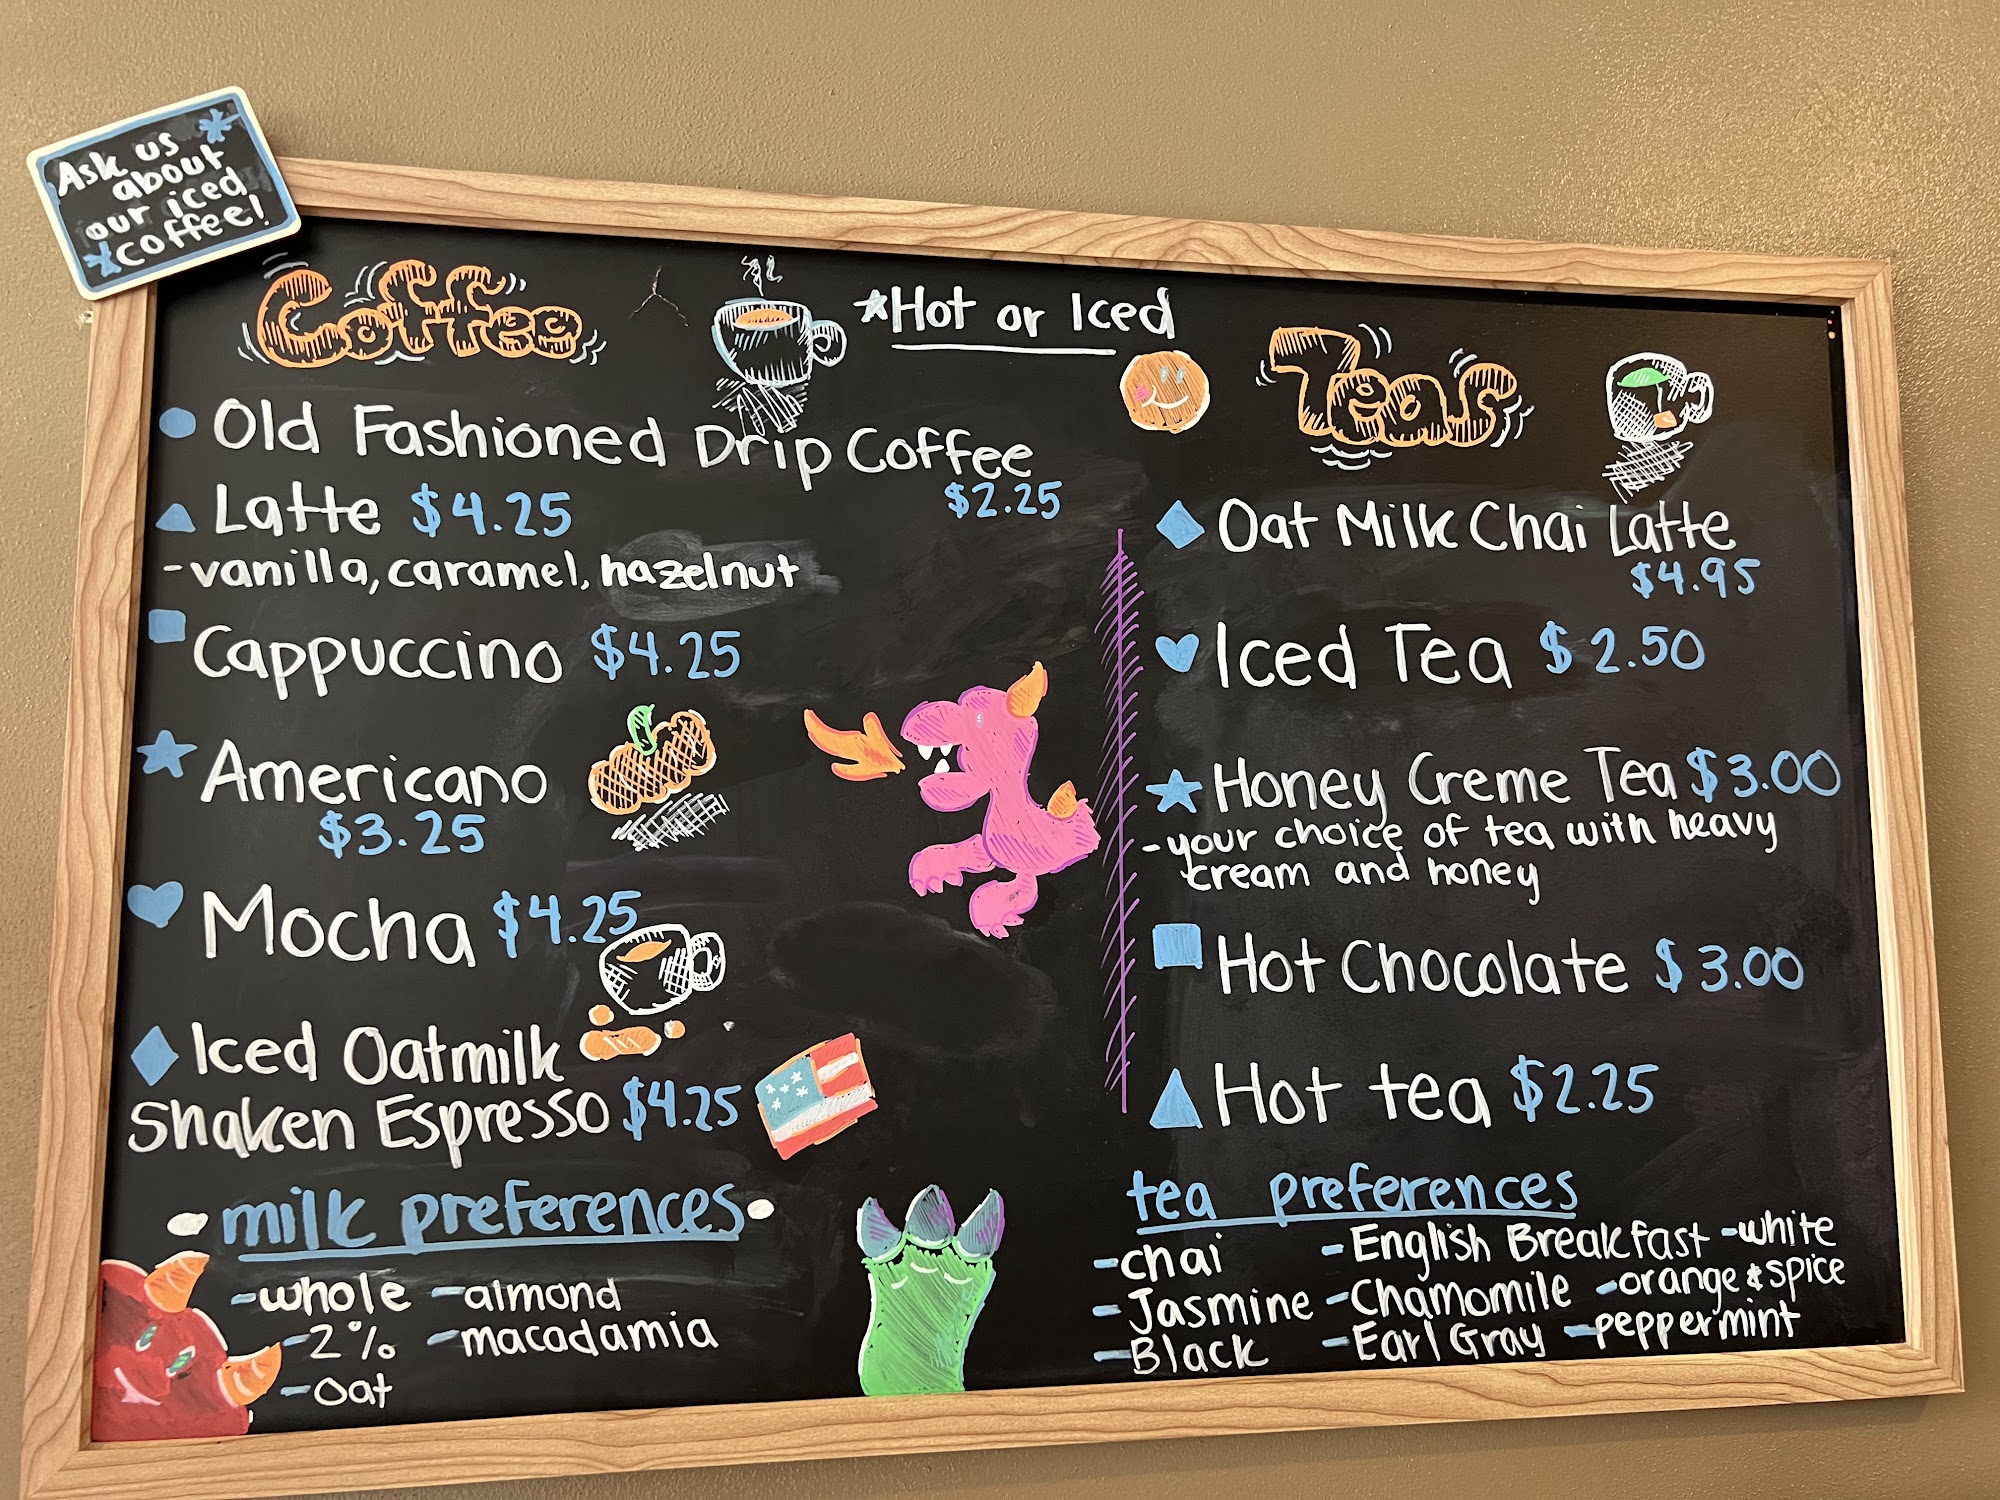 Ask us
about
our iced
coffee!
Coffee
*Hot or Iced
Old Fashioned Drip Coffee
$2.25
Latte $4.25
-vanilla, caramel, hazelnut
Cappuccino $4.25
Americano
$3.25
Mocha $4.25
Iced Oatmilk
Shaken Espresso $4.25
milk preferences
-whole -almond
-2% -macadamia
-oat
Teas
Oat Milk Chai Latte
$4.95
Iced Tea $2.50
Honey Creme Tea $3.00
-your choice of tea with heavy
cream and honey
Hot Chocolate $3.00
Hot tea $2.25
tea preferences
-chai -English Breakfast -white
-Jasmine -Chamomile -orange & spice
-Black -Earl Gray -peppermint